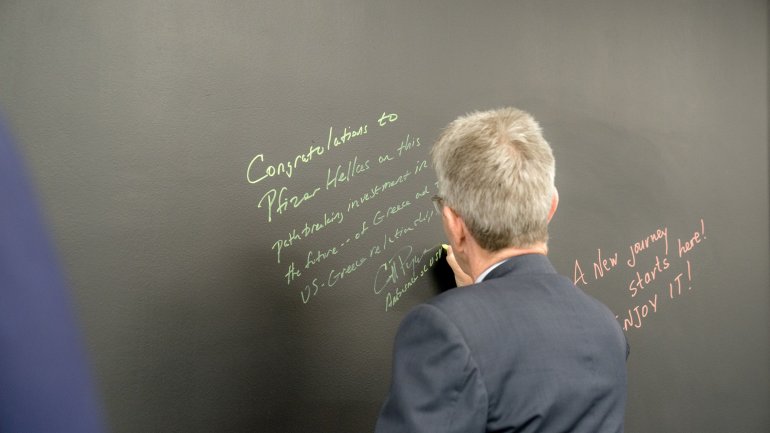 Congratulations to
Pfizer Hellas on this
pathbreaking investment in
the future -- of Greece and
US-Greece relationship
Ambassador
A New journey
starts here!
ENJOY IT!